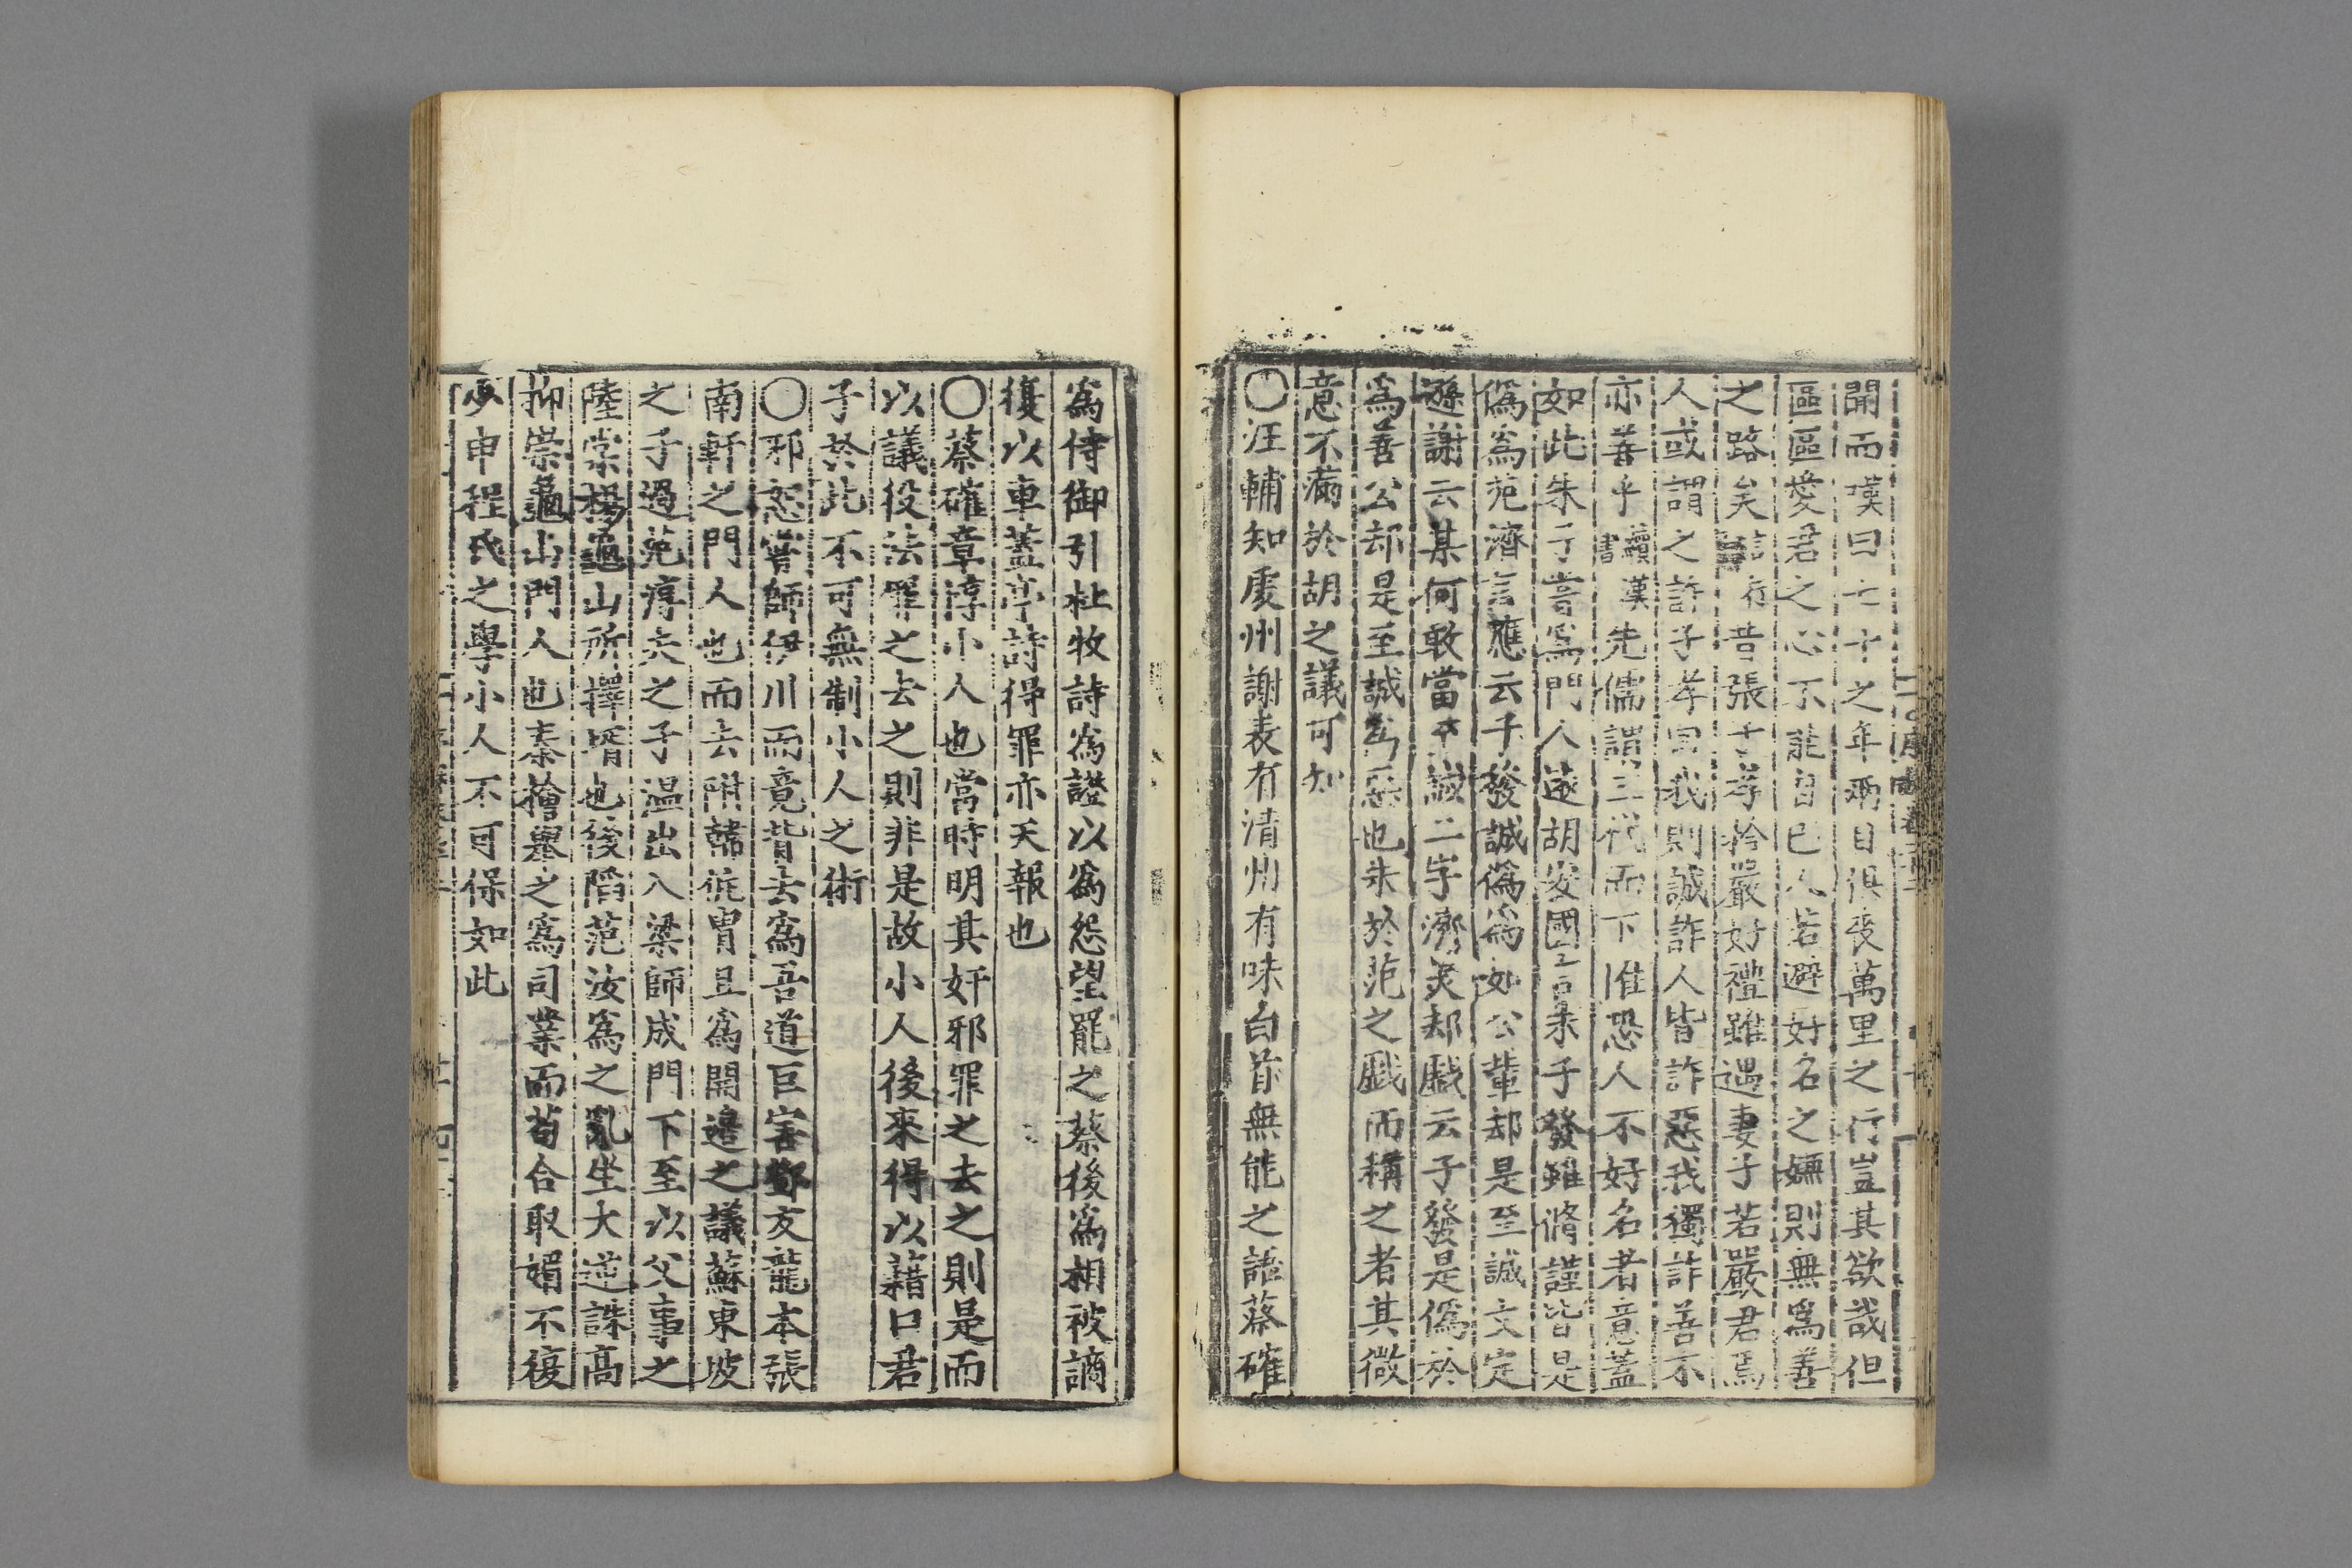 聞而嘆曰七十之年兩目俱喪萬里之行豈其欲哉但
區區愛君之心不能自已人若避好名之嫌則無爲善
之路矣言行昔張子孝矜嚴好禮雖遇妻子若嚴君焉
人或謂之詐子孝曰我則誠詐人皆詐惡我獨詐善不
亦善乎續漢書先儒謂三代而下惟恐人不好名者意蓋
如此朱子發嘗爲門人胡安國言朱子發雖脩謹皆是
僞爲范濟言應云子發誠僞爲如公輩却是至誠文定
遜謝云某何敢當至誠二字濟美却戱云子發是僞於
爲善公却是至誠爲惡也朱於范之戱而稱之者其微
意不滿於胡之議可知
〇汪輔知䖏州謝表有清州有味白首無能之語蔡確
爲侍御引杜牧詩爲證以爲怨望罷之蔡後爲相被謫
復以車蓋亭詩得罪亦天報也
〇蔡確章淳小人也當時明其奸邪罪之去之則是而
以議役法罪之去之則非是故小人後來得以藉口君
子於此不可無制小人之術
〇邪恕嘗師伊川而竟背去爲吾道巨害鄧友龍本張
南軒之門人也而去附韓侂胄且爲開邊之議蘇東坡
之子過范淳夫之子温出入梁師成門下至以父事之
陸棠楊龜山所擇壻也後陷范汝爲之亂坐大逆誅高
抑崇龜山門人也秦檜舉之爲司業而苟合取媚不復
少申程氏之學小人不可保如此